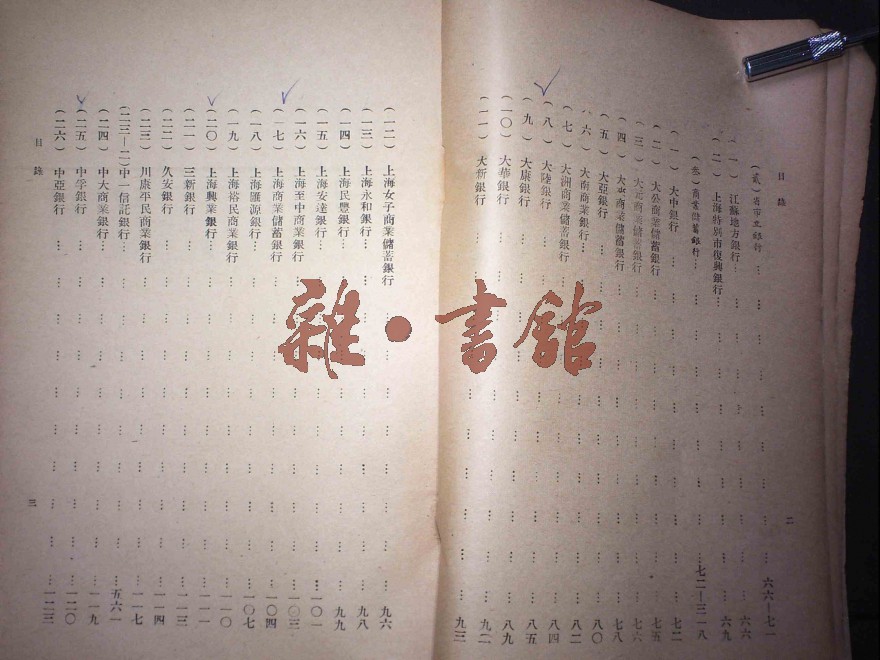 目錄
(貳)省市立銀行……六六—七一
(一)江蘇地方銀行……六六
(二)上海特別市復興銀行……六九
(叁)商業儲蓄銀行……七二—三一八
(一)大中銀行……七二
(二)大公商業儲蓄銀行……七五
(三)大元商業儲蓄銀行……七六
(四)商業儲蓄銀行……七八
(五)大亞銀行……八〇
(六)大南商業銀行……八二
(七)大洲商業儲蓄銀行……八三
(八)大陸銀行……八四
(九)大康銀行……八五
(一〇)大華銀行……八九
(一一)大新銀行……九二
二
(一二)上海女子商業儲蓄銀行……九六
(一三)上海永和銀行……九八
(一四)上海民孚銀行……九九
(一五)上海安達銀行……一〇一
(一六)上海至中商業銀行……一〇三
(一七)上海商業儲蓄銀行……一〇四
(一八)上海匯源銀行……一〇七
(一九)上海裕民商業銀行……一一〇
(二〇)上海興業銀行……一一一
(二一)三新銀行……一一三
(二二)久安銀行……一一四
(二三)川康平民商業銀行……一一七
(二三—二)中一信託銀行……五六一
(二四)中大商業銀行……一一九
(二五)中孚銀行……一二〇
(二六)中亞銀行……一二三
目錄
三
雜•書館